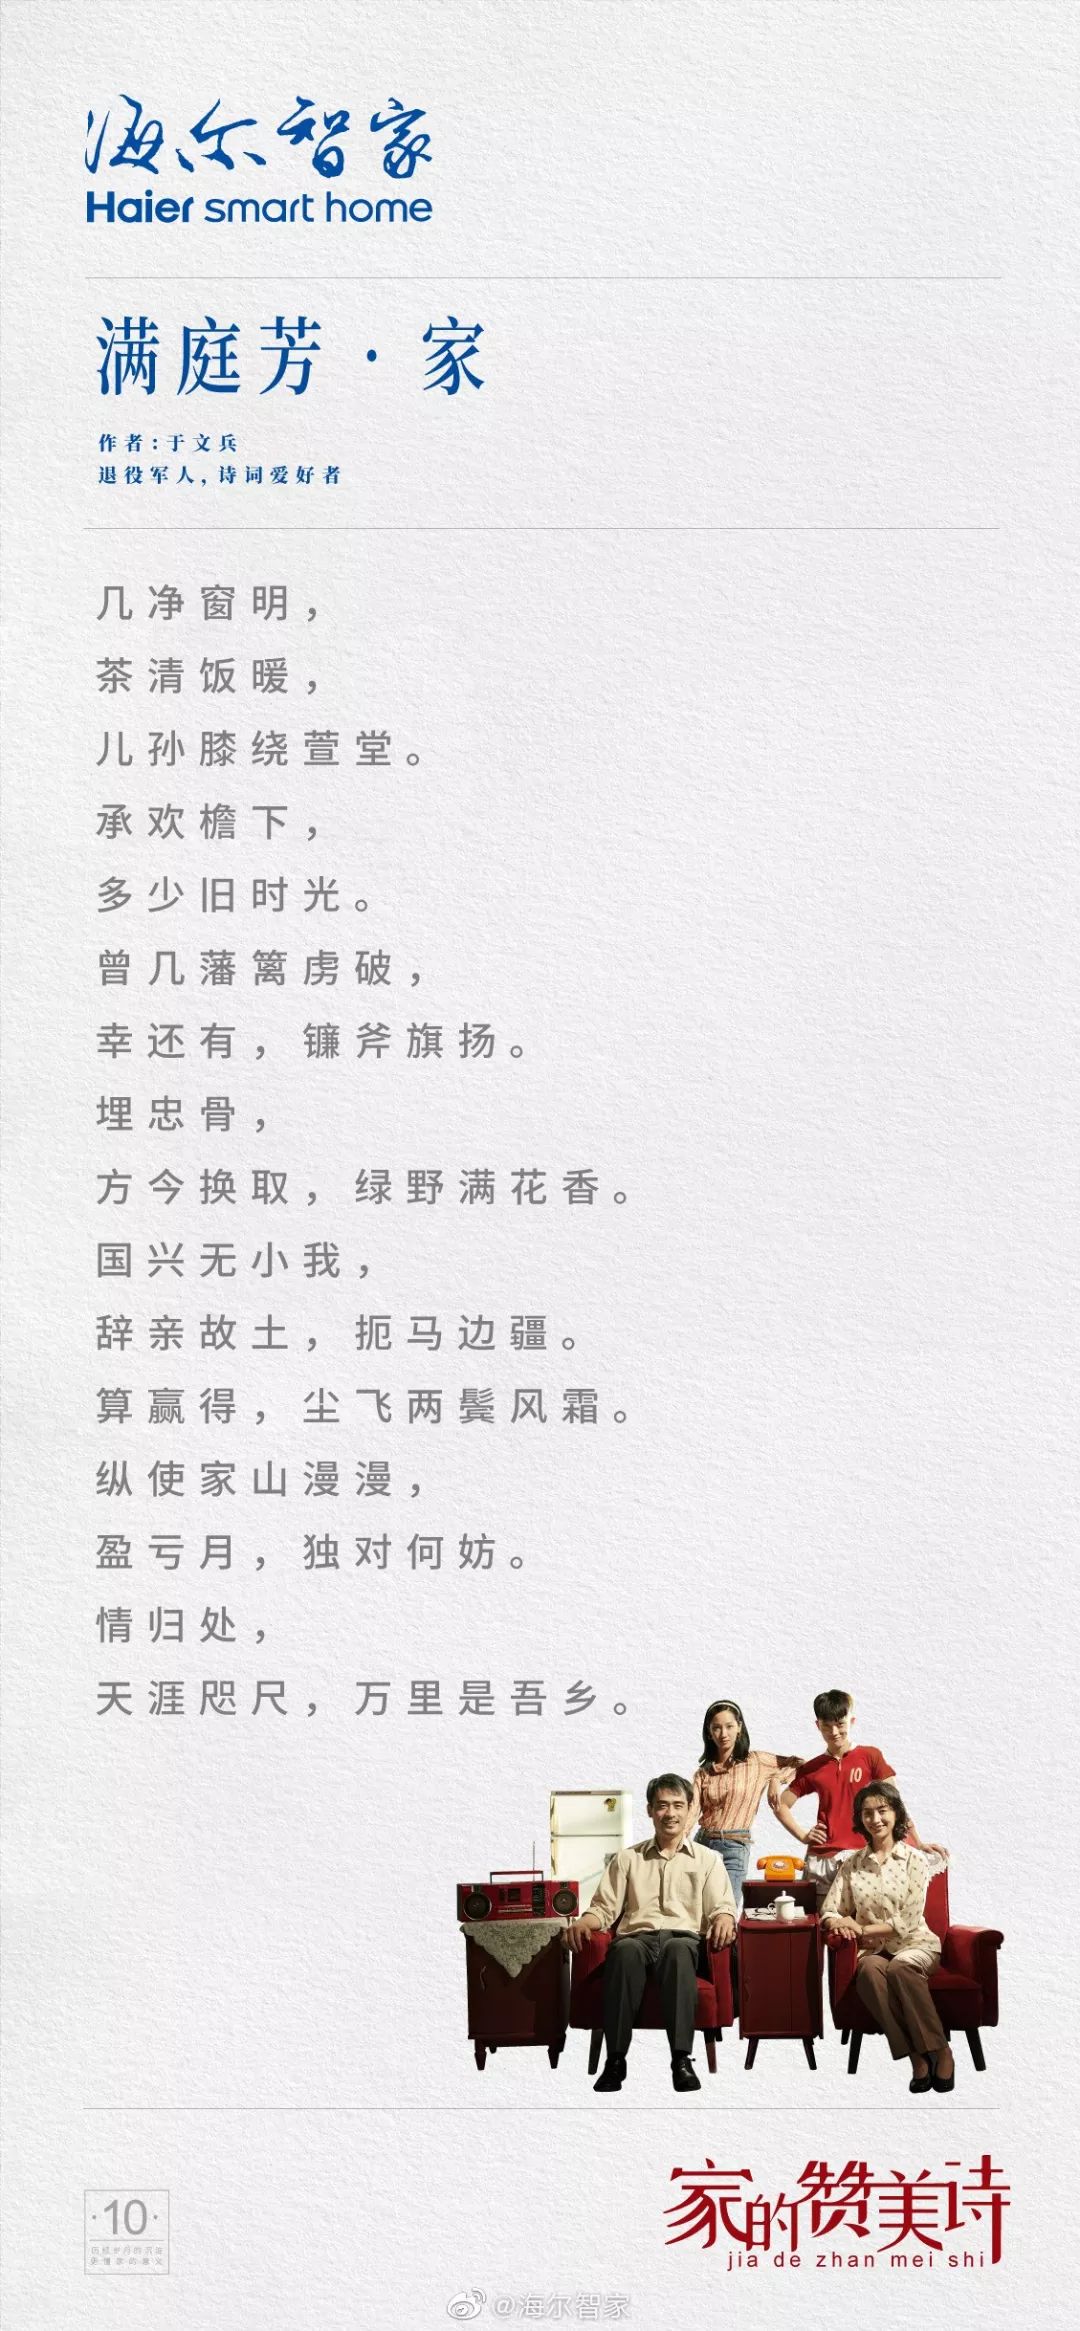 海尔智家
Haier smart home
满庭芳·家
作者:于文兵
退役军人,诗词爱好者
几净窗明，
茶清饭暖，
儿孙膝绕萱堂。
承欢檐下，
多少旧时光。
曾几藩篱虏破，
幸还有，镰斧旗扬。
埋忠骨，
方今换取，绿野满花香。
国兴无小我，
辞亲故土，扼马边疆。
算赢得，尘飞两鬓风霜。
纵使家山漫漫，
盈亏月，独对何妨。
情归处，
天涯咫尺，万里是吾乡。
10
家的赞美诗
·10·
历经岁月的沉淀
更懂家的意义
jia de zhan mei shi
@海尔智家